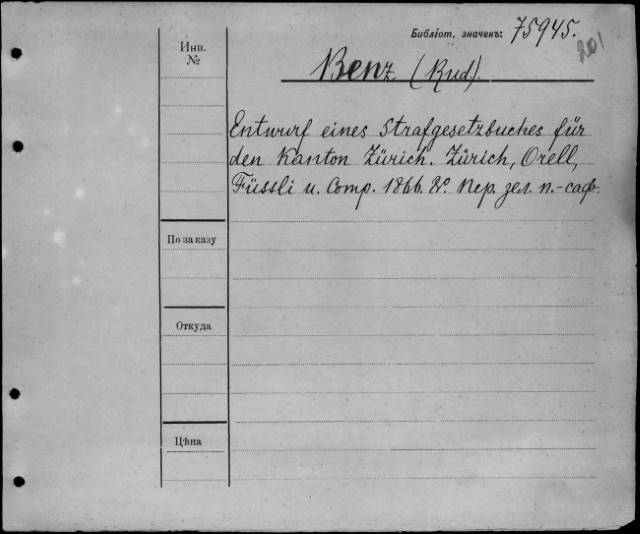 Библіот. значекъ: 75945.
201
Инв.
№
Benz (Rud.).
Entwurf eines Strafgesetzbuches für
den Kanton Zürich. Zürich, Orell,
Füssli u. Comp. 1866. 8º. Пер. зел. п.-саф.
По заказу
Откуда
Цѣна